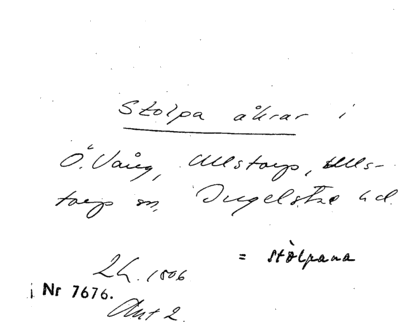 Stolpa åkrar i
Ö. Vång, Ullstorp, Ulls-
torp sn, Ingelsta hd.
= stòlpana
Lh. 1806
i Nr 7676.
Akt 2.